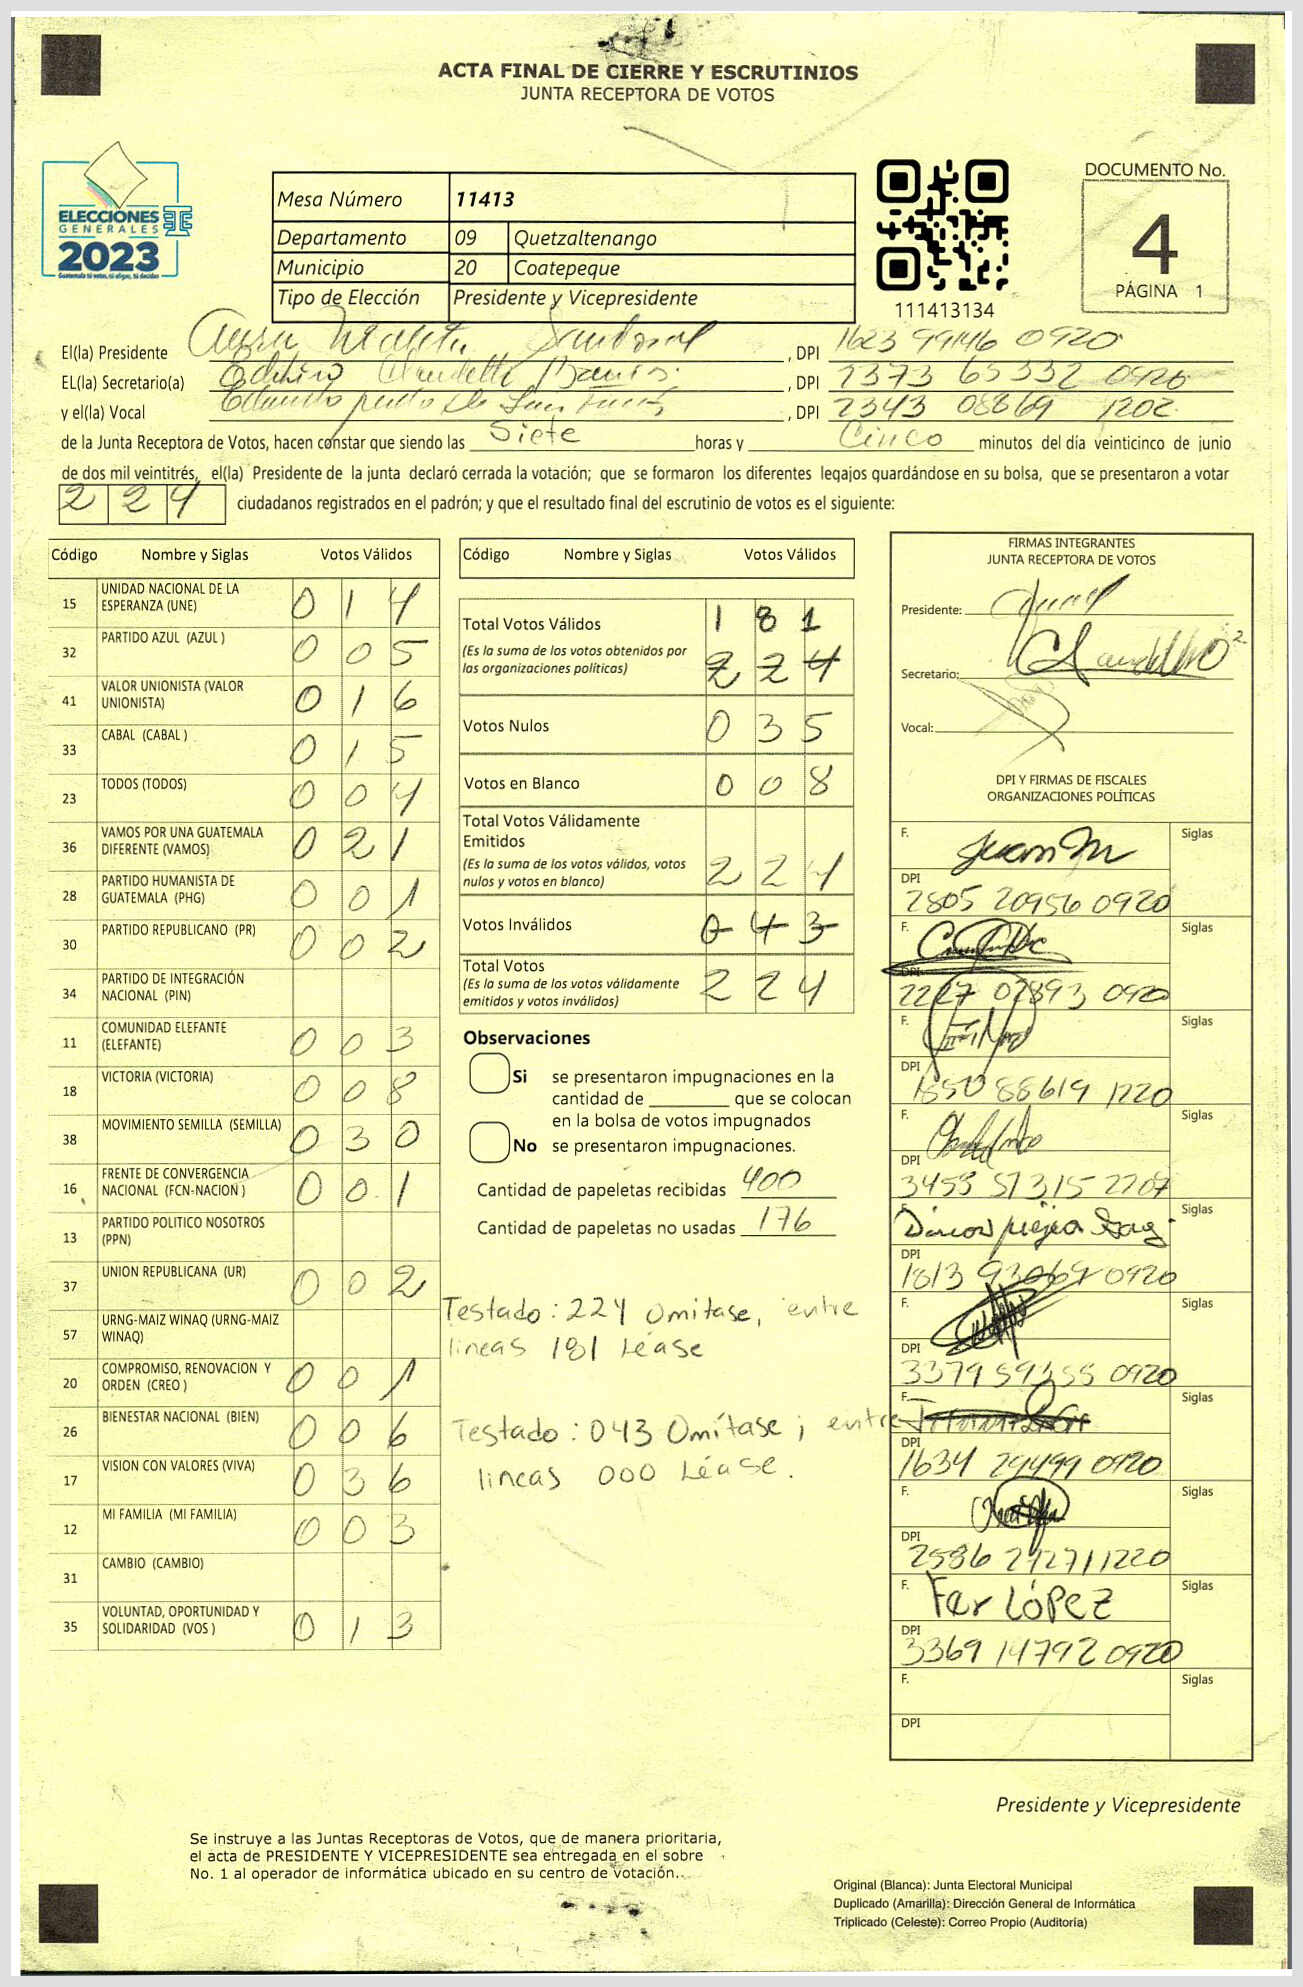 ACTA FINAL DE CIERRE Y ESCRUTINIOS
JUNTA RECEPTORA DE VOTOS
ELECCIONES
GENERALES
2023
Mesa Número 11413
Departamento 09 Quetzaltenango
Municipio 20 Coatepeque
Tipo de Elección Presidente y Vicepresidente
111413134
DOCUMENTO No.
4
PÁGINA 1
El(la) Presidente Sandoval , DPI 1623 99146 0920
EL(la) Secretario(a) , DPI 2373 65332 0920
y el(la) Vocal , DPI 2343 08869 1202
de la Junta Receptora de Votos, hacen constar que siendo las Siete horas y Cinco minutos del día veinticinco de junio
de dos mil veintitrés, el(la) Presidente de la junta declaró cerrada la votación; que se formaron los diferentes legajos guardándose en su bolsa, que se presentaron a votar
224 ciudadanos registrados en el padrón; y que el resultado final del escrutinio de votos es el siguiente:
Código Nombre y Siglas Votos Válidos
15 UNIDAD NACIONAL DE LA ESPERANZA (UNE) 0 1 4
32 PARTIDO AZUL (AZUL ) 0 0 5
41 VALOR UNIONISTA (VALOR UNIONISTA) 0 1 6
33 CABAL (CABAL ) 0 1 5
23 TODOS (TODOS) 0 0 4
36 VAMOS POR UNA GUATEMALA DIFERENTE (VAMOS) 0 2 1
28 PARTIDO HUMANISTA DE GUATEMALA (PHG) 0 0 1
30 PARTIDO REPUBLICANO (PR) 0 0 2
34 PARTIDO DE INTEGRACIÓN NACIONAL (PIN)
11 COMUNIDAD ELEFANTE (ELEFANTE) 0 0 3
18 VICTORIA (VICTORIA) 0 0 8
38 MOVIMIENTO SEMILLA (SEMILLA) 0 3 0
16 FRENTE DE CONVERGENCIA NACIONAL (FCN-NACION ) 0 0 1
13 PARTIDO POLITICO NOSOTROS (PPN)
37 UNION REPUBLICANA (UR) 0 0 2
57 URNG-MAIZ WINAQ (URNG-MAIZ WINAQ)
20 COMPROMISO, RENOVACION Y ORDEN (CREO ) 0 0 1
26 BIENESTAR NACIONAL (BIEN) 0 0 6
17 VISION CON VALORES (VIVA) 0 3 6
12 MI FAMILIA (MI FAMILIA) 0 0 3
31 CAMBIO (CAMBIO)
35 VOLUNTAD, OPORTUNIDAD Y SOLIDARIDAD (VOS ) 0 1 3
Código Nombre y Siglas Votos Válidos
Total Votos Válidos 1 8 1
(Es la suma de los votos obtenidos por
las organizaciones políticas) 2 2 4
Votos Nulos 0 3 5
Votos en Blanco 0 0 8
Total Votos Válidamente
Emitidos
(Es la suma de los votos válidos, votos
nulos y votos en blanco) 2 2 4
Votos Inválidos 0 4 3
Total Votos
(Es la suma de los votos válidamente
emitidos y votos inválidos) 2 2 4
Observaciones
Si se presentaron impugnaciones en la
cantidad de ________ que se colocan
en la bolsa de votos impugnados
No se presentaron impugnaciones.
Cantidad de papeletas recibidas 400
Cantidad de papeletas no usadas 176
Testado: 224 Omitase, entre
lineas 181 Léase
Testado: 043 Omítase; entre
lineas 000 Léase.
FIRMAS INTEGRANTES
JUNTA RECEPTORA DE VOTOS
Presidente:
Secretario:
Vocal:
DPI Y FIRMAS DE FISCALES
ORGANIZACIONES POLÍTICAS
F. Juan M Siglas
DPI
2805 20956 0920
F. Siglas
DPI
2227 02893 0920
F. Siglas
DPI
1850 88619 1220
F. Siglas
DPI
3453 51315 2207
F. Siglas
DPI
1813 93069 0920
F. Siglas
DPI
3379 59355 0920
F. Siglas
DPI
1634 29499 0920
F. Siglas
DPI
2586 29271 1220
F. Fer López Siglas
DPI
3369 14792 0920
F. Siglas
DPI
Presidente y Vicepresidente
Se instruye a las Juntas Receptoras de Votos, que de manera prioritaria,
el acta de PRESIDENTE Y VICEPRESIDENTE sea entregada en el sobre
No. 1 al operador de informática ubicado en su centro de votación.
Original (Blanca): Junta Electoral Municipal
Duplicado (Amarilla): Dirección General de Informática
Triplicado (Celeste): Correo Propio (Auditoría)